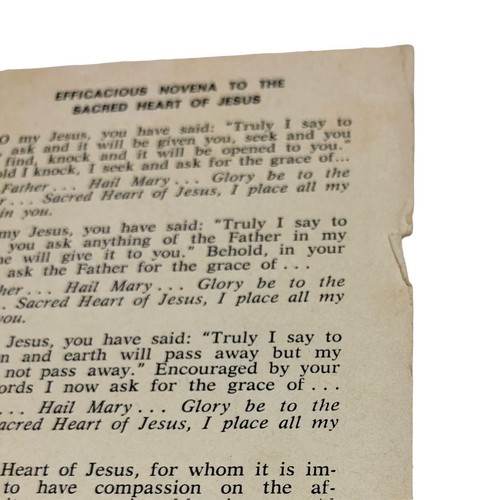 EFFICACIOUS NOVENA TO THE
SACRED HEART OF JESUS
O my Jesus, you have said: "Truly I say to
ask and it will be given you, seek and you
find, knock and it will be opened to you."
I knock, I seek and ask for the grace of...
Father... Hail Mary... Glory be to the
... Sacred Heart of Jesus, I place all my
in you.
my Jesus, you have said: "Truly I say to
you ask anything of the Father in my
will give it to you." Behold, in your
ask the Father for the grace of ...
... Hail Mary... Glory be to the
... Sacred Heart of Jesus, I place all my
Jesus, you have said: "Truly I say to
and earth will pass away but my
not pass away." Encouraged by your
I now ask for the grace of ...
... Hail Mary... Glory be to the
Heart of Jesus, I place all my
Heart of Jesus, for whom it is im-
to have compassion on the af-